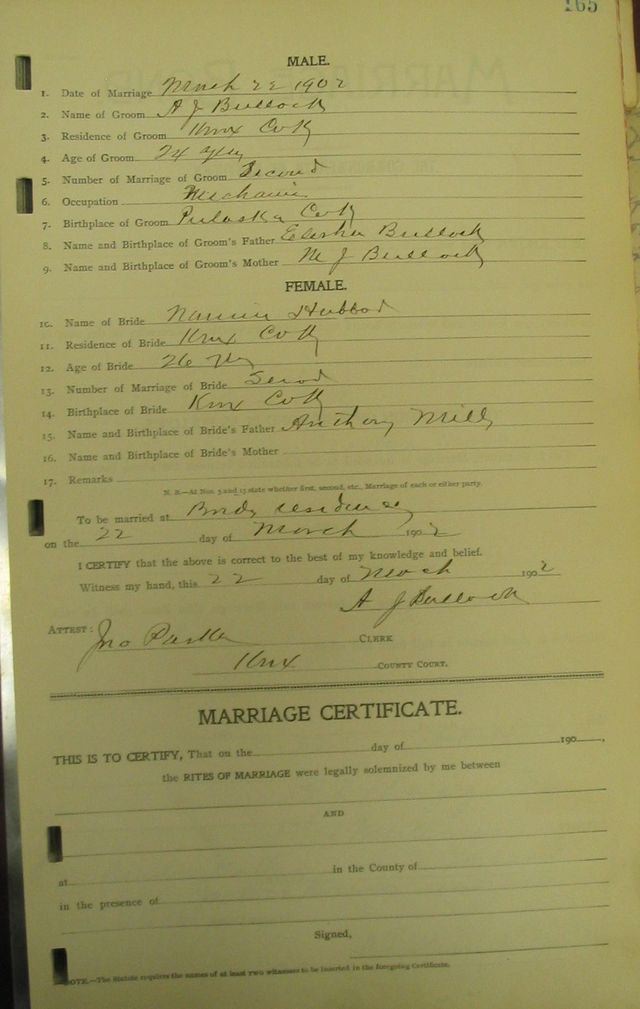 165
MALE.
1. Date of Marriage March 22 1902
2. Name of Groom A J Bullock
3. Residence of Groom Knx Co Ky
4. Age of Groom 24 yrs
5. Number of Marriage of Groom Second
6. Occupation Mechanic
7. Birthplace of Groom Pulaska Co Ky
8. Name and Birthplace of Groom's Father Elisha Bullock
9. Name and Birthplace of Groom's Mother M J Bullock
FEMALE.
10. Name of Bride Nannie Hubbard
11. Residence of Bride Knx Co Ky
12. Age of Bride 26 yrs
13. Number of Marriage of Bride
14. Birthplace of Bride Knx Co Ky
15. Name and Birthplace of Bride's Father Anthony Mills
16. Name and Birthplace of Bride's Mother
17. Remarks
N. B.—At Nos. 5 and 13 state whether first, second, etc., Marriage of each or either party.
To be married at Brids residence
on the 22 day of March 1902
I CERTIFY that the above is correct to the best of my knowledge and belief.
Witness my hand, this 22 day of March 1902
A J Bullock
ATTEST: Jno Parker CLERK
Knx COUNTY COURT.
MARRIAGE CERTIFICATE.
THIS IS TO CERTIFY, That on the day of 190 ,
the RITES OF MARRIAGE were legally solemnized by me between
AND
at in the County of
in the presence of
Signed,
NOTE.—The Statute requires the names of at least two witnesses to be inserted in the foregoing Certificate.